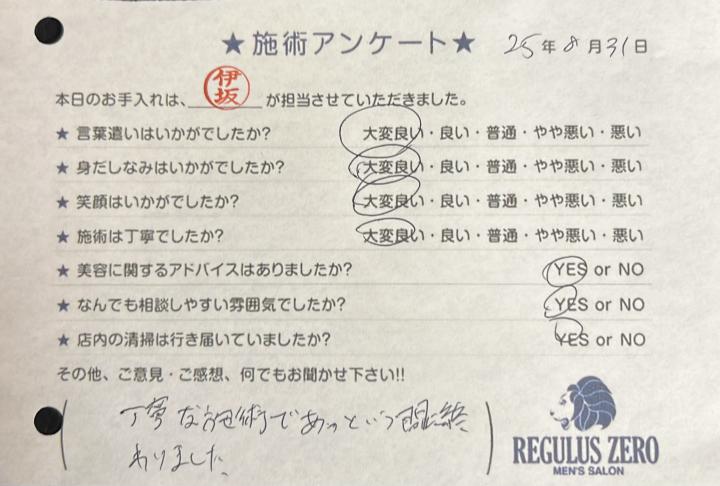 ★施術アンケート★ 25年8月31日
本日のお手入れは、伊坂が担当させていただきました。
★ 言葉遣いはいかがでしたか? 大変良い・良い・普通・やや悪い・悪い
★ 身だしなみはいかがでしたか? 大変良い・良い・普通・やや悪い・悪い
★ 笑顔はいかがでしたか? 大変良い・良い・普通・やや悪い・悪い
★ 施術は丁寧でしたか? 大変良い・良い・普通・やや悪い・悪い
★ 美容に関するアドバイスはありましたか? YES or NO
★ なんでも相談しやすい雰囲気でしたか? YES or NO
★ 店内の清掃は行き届いていましたか? YES or NO
その他、ご意見・ご感想、何でもお聞かせ下さい!!
丁寧な施術であっという間に終
わりました
REGULUS ZERO
MEN'S SALON